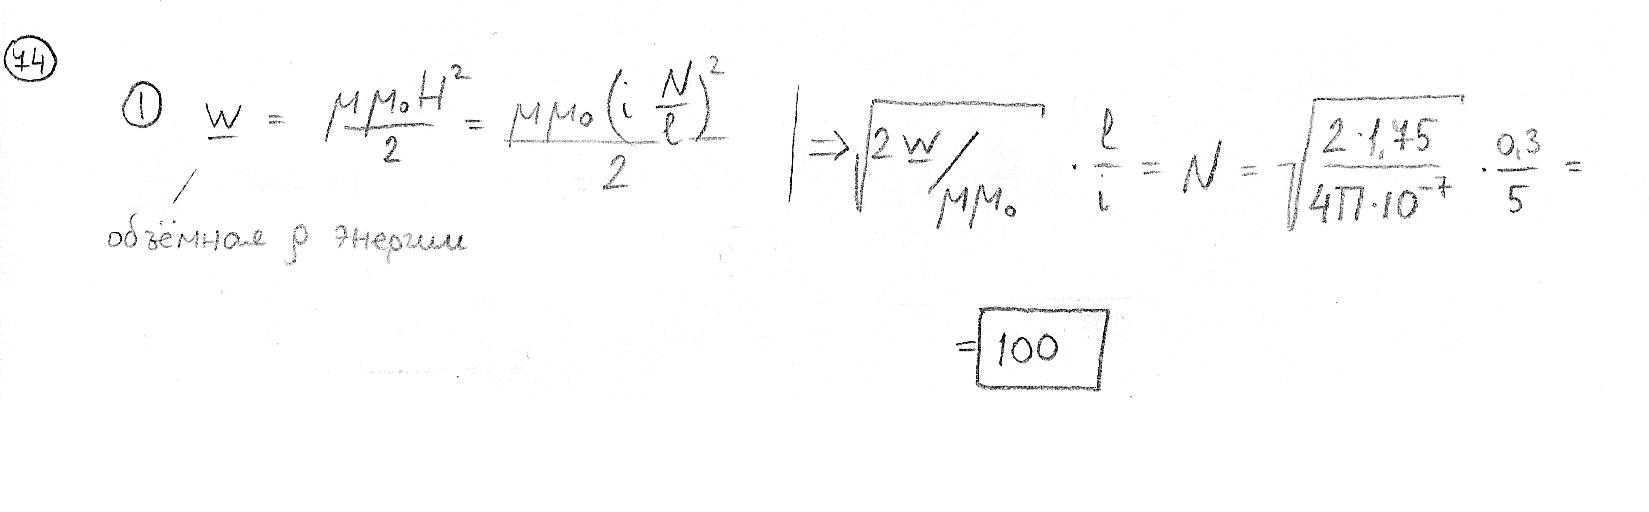 74
① w = μμ₀H²/2 = μμ₀(i N/l)²/2 | ⇒ √(2w/μμ₀) · l/i = N = √(2·1,75/4π·10⁻⁷) · 0,3/5 =
объёмная ρ энергии
= 100